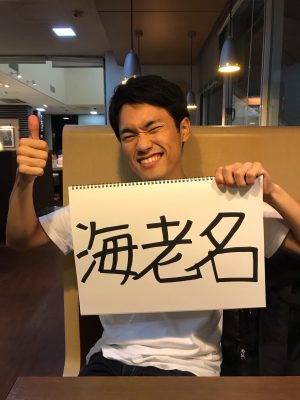 海老名